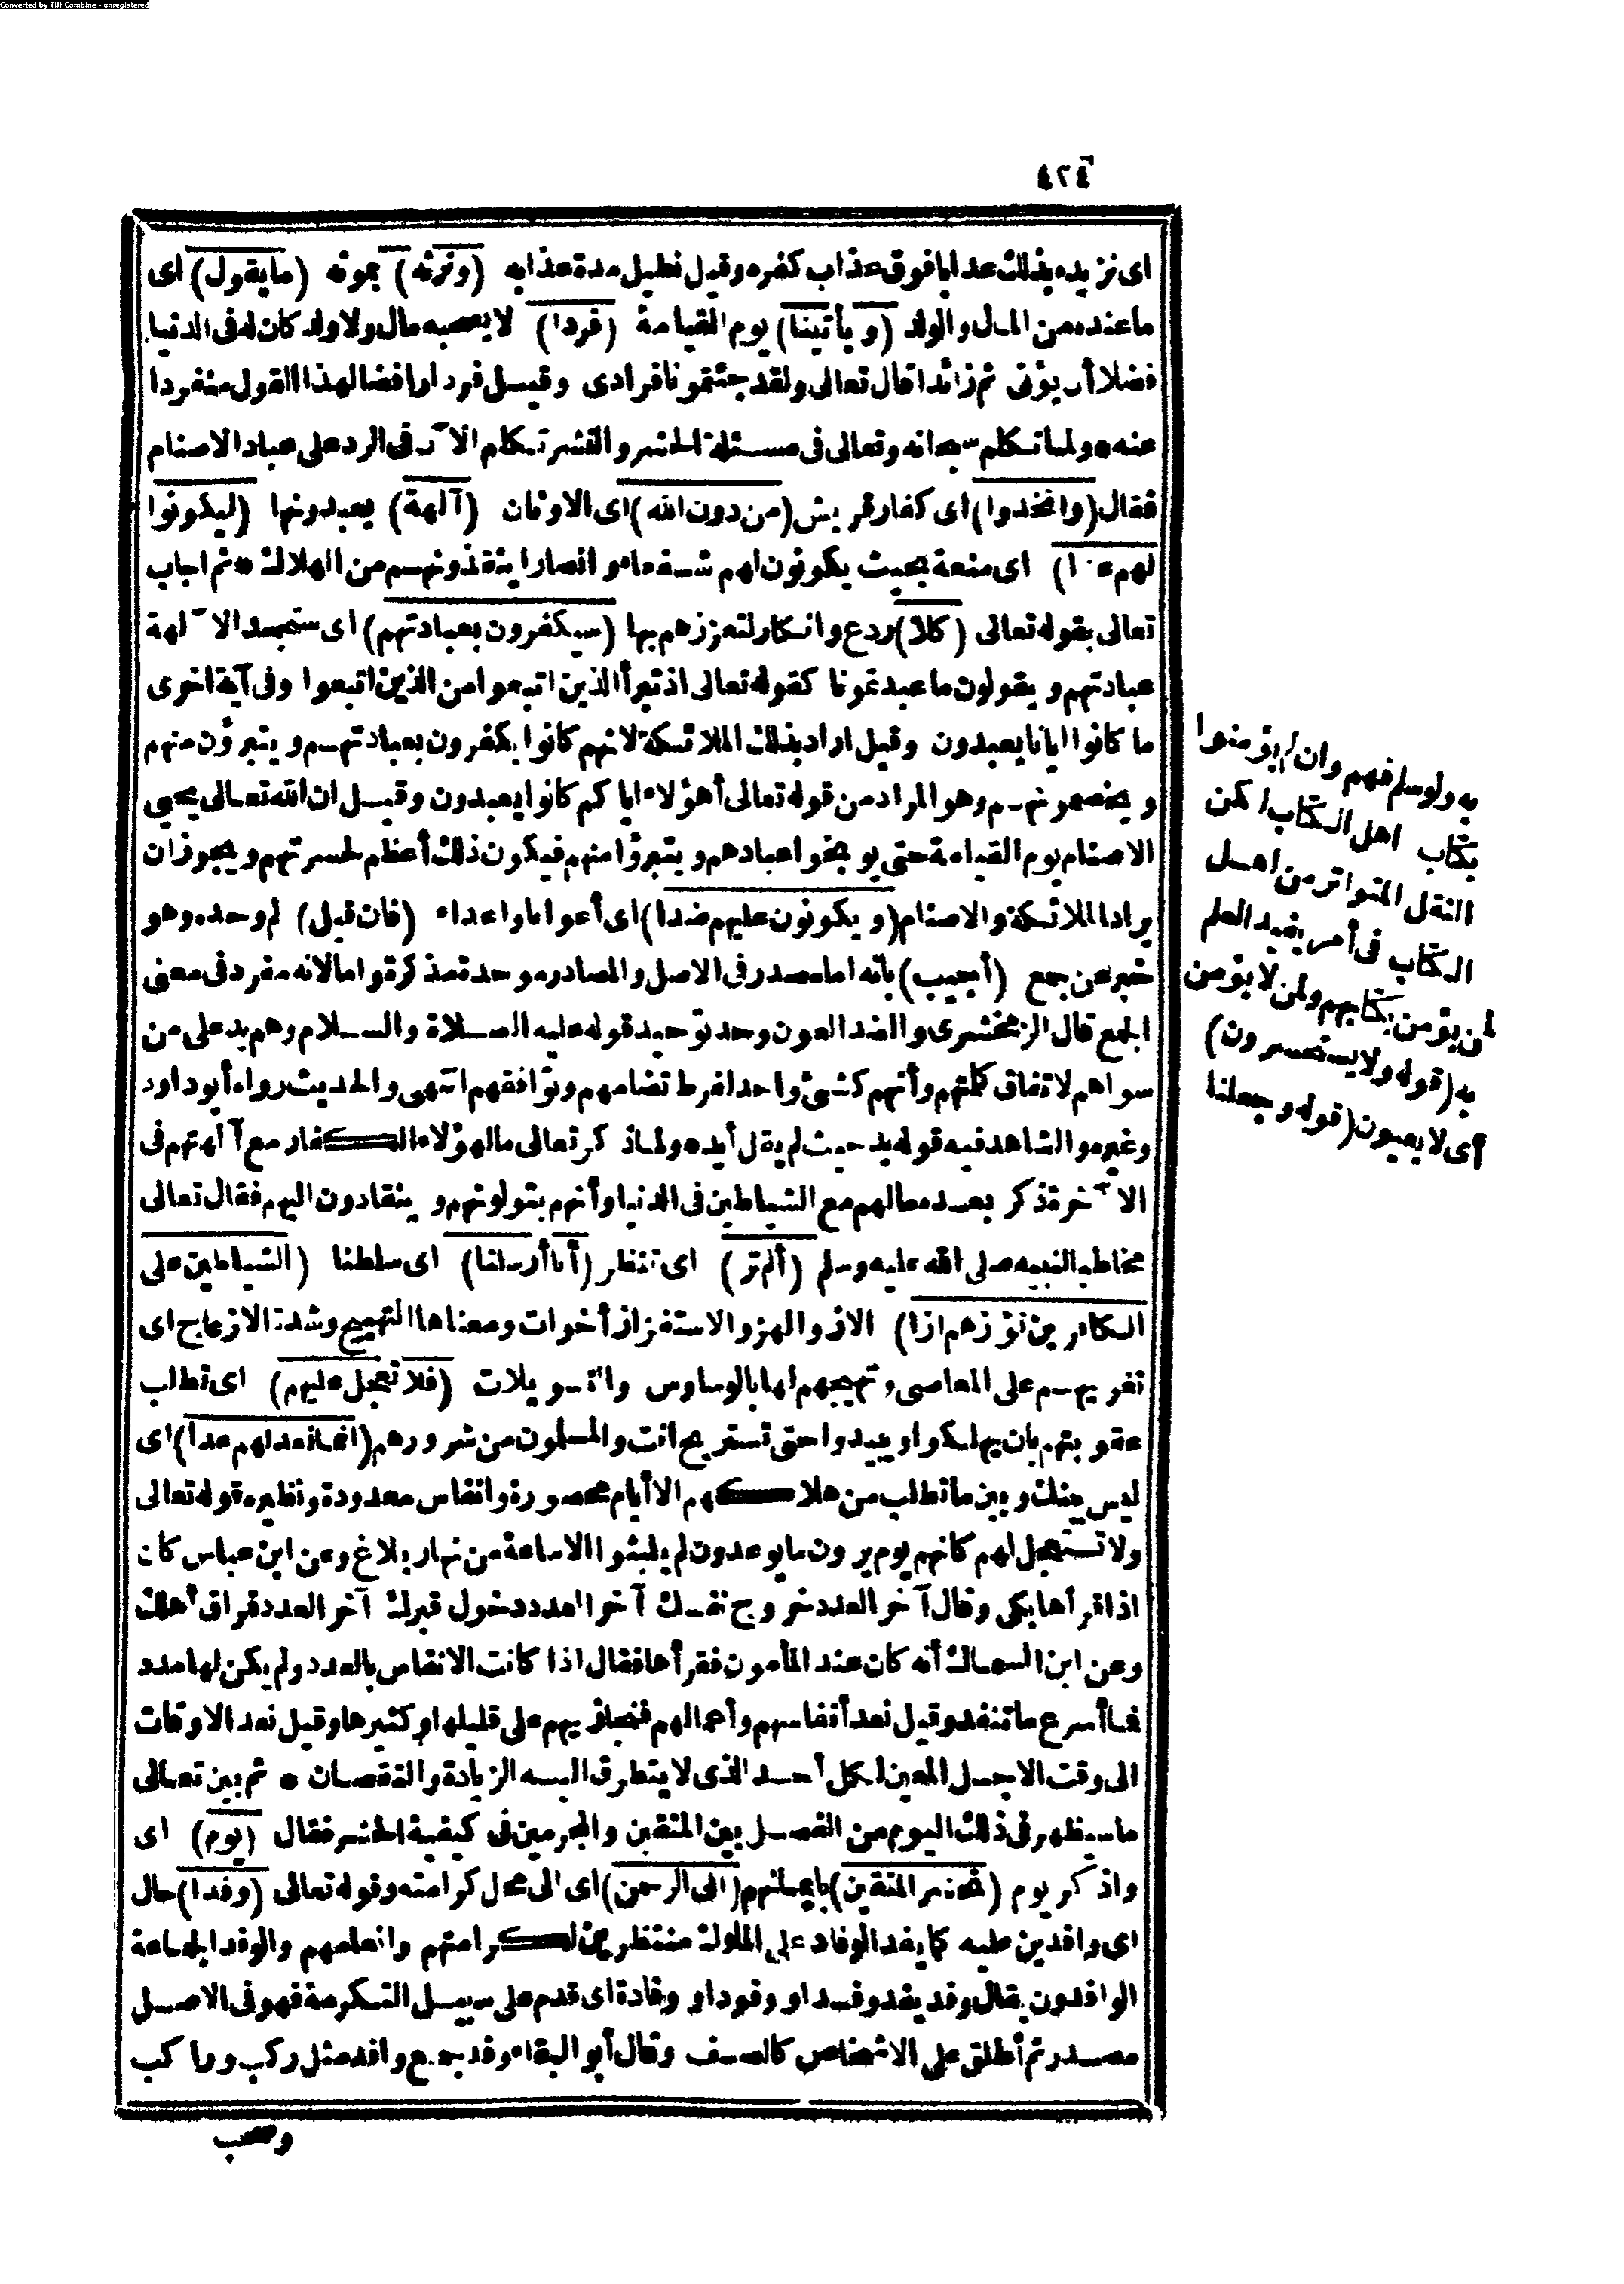 Converted by Tiff Combine - unregistered
٤٢٤
اى نزيده بذلك عذابا فوق عذاب كفره وقيل نطيل مدة عذابه (ونرثه) بموته (ما يقول) اى
ما عنده من المال والولد (ويأتينا) يوم القيامة (فردا) لا يصحبه مال ولا ولد كان له فى الدنيا
فضلا أن يؤتى ثم زائدا قال تعالى ولقد جئتمونا فرادى وقيل فردا رافضا لهذا القول منفردا
عنه * ولما تكلم سبحانه وتعالى فى مسئلة الحشر والنشر تكلم الآن فى الرد على عباد الاصنام
فقال (واتخذوا) اى كفار قريش (من دون الله) اى الاوثان (آلهة) يعبدونها (ليكونوا
لهم عزا) اى منعة بحيث يكونون لهم شفعاء وانصارا ينقذونهم من الهلاك * ثم اجاب
تعالى بقوله تعالى (كلا) ردع وانكار لتعززهم بها (سيكفرون بعبادتهم) اى ستجحد الآلهة
عبادتهم ويقولون ما عبدتمونا كقوله تعالى اذ تبرأ الذين اتبعوا من الذين اتبعوا وفى آية اخرى
ما كانوا ايانا يعبدون وقيل اراد بذلك الملائكة لانهم كانوا يكفرون بعبادتهم ويتبرؤن منهم
ويخصمونهم وهو المراد من قوله تعالى أهؤلاء اياكم كانوا يعبدون وقيل ان الله تعالى يحيى
الاصنام يوم القيامة حتى يوبخوا عبادهم ويتبرؤا منهم فيكون ذلك أعظم لحسرتهم ويجوز ان
يراد الملائكة والاصنام (ويكونون عليهم ضدا) اى أعوانا واعداء (فان قيل) لم وحده وهو
خبر عن جمع (أجيب) بأنه اما مصدر فى الاصل والمصادر موحدة مذكرة واما لانه مفرد فى معنى
الجمع قال الزمخشرى والضد العون وحد توحيد قوله عليه الصلاة والسلام وهم يد على من
سواهم لاتفاق كلمتهم وأنهم كشئ واحد لفرط تضامهم وتوافقهم انتهى والحديث رواه أبو داود
وغيره والشاهد فيه قوله يد حيث لم يقل أيد ه ولما ذكر تعالى ما لهؤلاء الكفار مع آلهتهم فى
الآخرة ذكر بعده ما لهم مع الشياطين فى الدنيا وأنهم يتولونهم وينقادون اليهم فقال تعالى
مخاطبا لنبيه صلى الله عليه وسلم (ألم تر) اى تنظر (أنا أرسلنا) اى سلطنا (الشياطين على
الكافرين تؤزهم ازا) الاز والهز والاستفزاز أخوات ومعناها التهييج وشدة الازعاج اى
تغريهم على المعاصى وتهيجهم لها بالوساوس والتسويلات (فلا تعجل عليهم) اى تطلب
عقوبتهم بان يهلكوا ويبيدوا حتى تستريح انت والمسلمون من شرورهم (انما نعد لهم عدا) اى
ليس بينك وبين ما تطلب من هلاكهم الا أيام محصورة وانفاس معدودة ونظيره قوله تعالى
ولا تستعجل لهم كانهم يوم يرون ما يوعدون لم يلبثوا الا ساعة من نهار بلاغ وعن ابن عباس كان
اذا قرأها بكى وقال آخر العدد خروج نفسك آخر العدد دخول قبرك آخر العدد فراق أهلك
وعن ابن السماك أنه كان عند المأمون فقرأها فقال اذا كانت الانفاس بالعدد ولم يكن لها مدد
فما أسرع ما تنفد وقيل نعد أنفاسهم وأعمالهم فنجازيهم على قليلها وكثيرها وقيل نعد الاوقات
الى وقت الاجل المعين لكل أحد الذى لا يتطرق اليه الزيادة والنقصان * ثم بين تعالى
ما سيظهر فى ذلك اليوم من الفصل بين المتقين والمجرمين فى كيفية الحشر فقال (يوم) اى
واذكر يوم (نحشر المتقين) بايمانهم (الى الرحمن) اى الى محل كرامته وقوله تعالى (وفدا) حال
اى وافدين عليه كما يفد الوفاد على الملوك منتظرين لكرامتهم وانعامهم والوفد الجماعة
الوافدون يقال وفد يفد وفدا ووفودا ووفادة اى قدم على سبيل التكرمة فهو فى الاصل
مصدر ثم أطلق على الاشخاص كالصف وقال أبو البقاء وفد جمع وافد مثل ركب وراكب
وصحب
به ولو سلم فهم وان لم يؤمنوا
بكتاب اهل الكتاب لكن
النقل المتواتر من اهل
الكتاب فى أمر يفيد العلم
لمن يؤمن بكتابهم ولمن لا يؤمن
به (قوله ولا يستحسرون)
أى لا يعيون (قوله وجعلنا